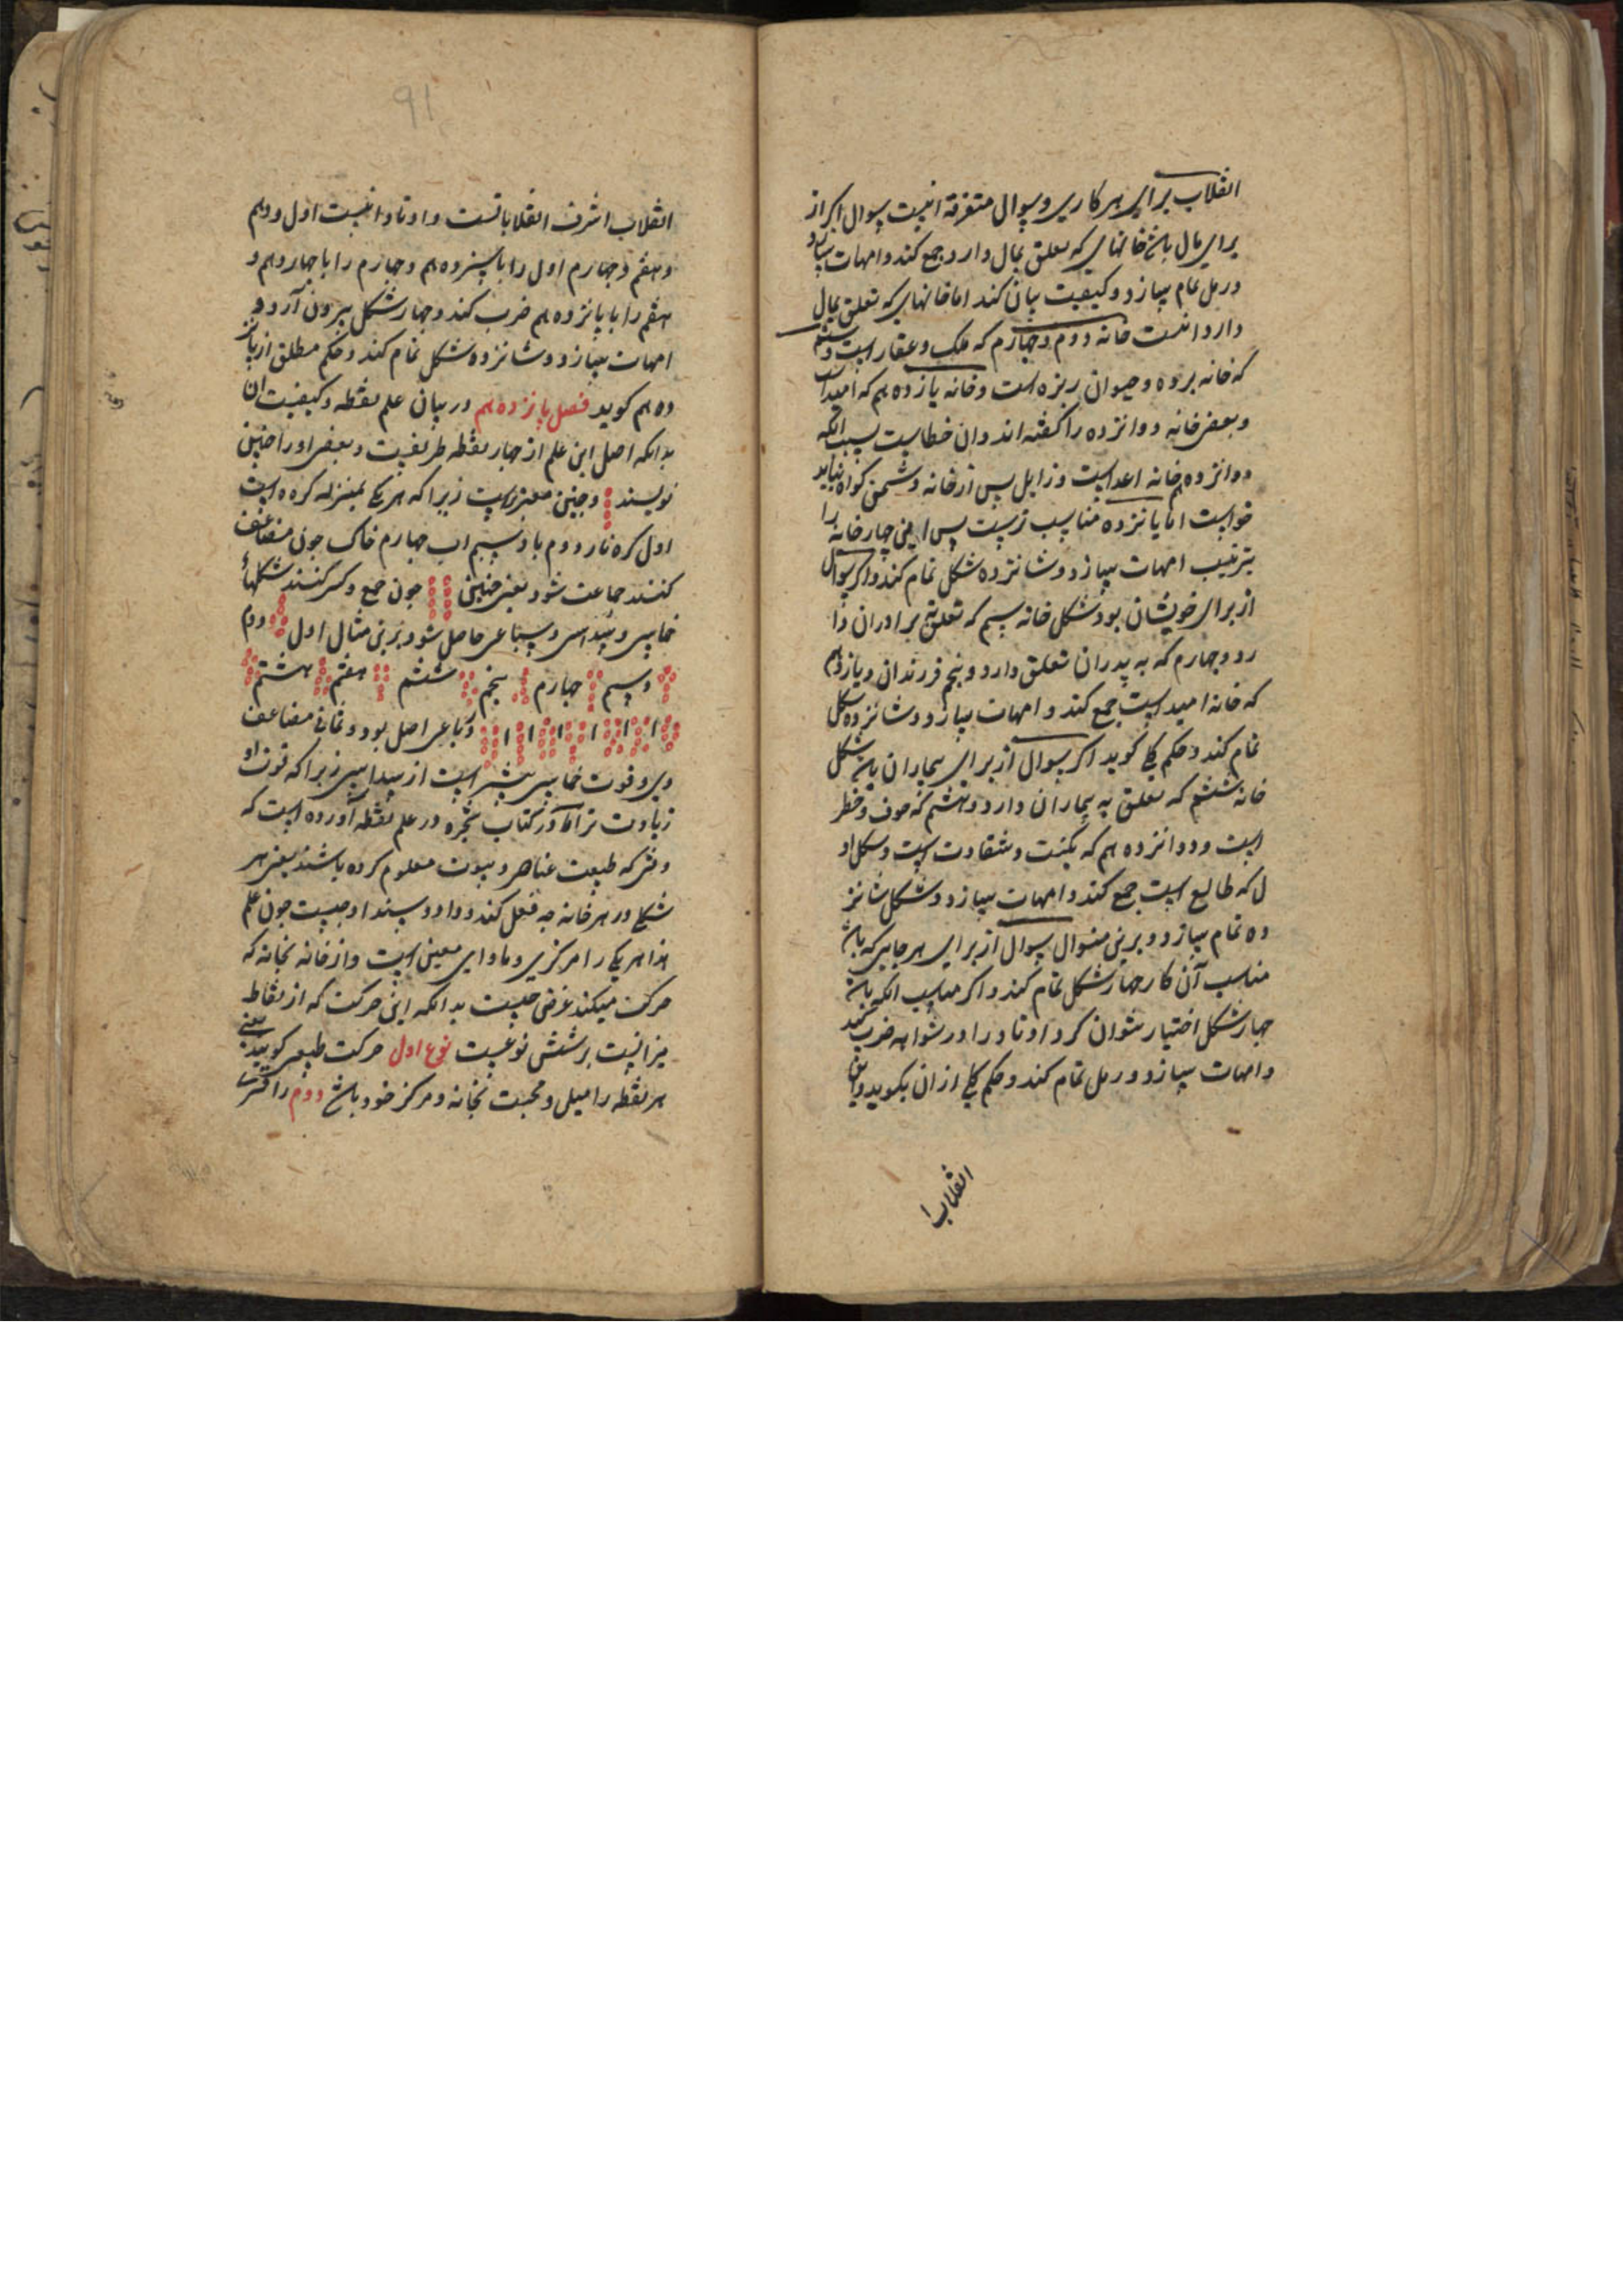 انقلاب برای هر کاری و سوال متفرقه اینست سوال اکر از
برای مال باشد خانهای که تعلق بمال دارد جمع کند و امهات سازد
و رمل تمام سازد و کیفیت بیان کند اما خانهای که تعلق بمال
دارد اینست خانه دوم و چهارم که ملک و عقار است و ششم
که خانه برده و حیوان ریزه است و خانه یازدهم که امید است
و بعضی خانه دوانزده را کفته اند و ان خطاست بسبب انکه
دوانزدهم خانه اعداست و زایل پس از خانه دشمن کواه نباید
خواست اما پانزده مناسب ترست پس این چهار خانه را
بترتیب امهات سازد و شانزده شکل تمام کند و اکر سوال
از برای خویشان بود شکل خانه سیم که تعلق ببرادران دا
رد و چهارم که به پدران تعلق دارد و پنجم فرزندان و یازدهم
که خانه امید است جمع کند و امهات سازد و شانزده شکل
تمام کند و حکم کلی کوید اکر سوال از برای بیماران باشد شکل
خانه ششم که تعلق به بیماران دارد و هشتم که خوف و خطر
است و دوانزدهم که نکبت و شقاوت است و شکل او
ل که طالع است جمع کند و امهات سازد و شکل شانز
ده تمام سازد و برین منوال سوال از برای هر چیز که باشد
مناسب آن کار چهار شکل تمام کند و اکر مناسب انکه باشد
چهار شکل اختیار نتوان کرد اوتاد را در شواهد ضرب کند
و امهات سازد و رمل تمام کند و حکم کلی از ان بکوید و این
انقلاب
91
انقلاب اشرف انقلاباتست و اوتاد اینست اول و دهم
و هفتم و چهارم اول را با سیزدهم و چهارم را با چهاردهم و
هفتم را با پانزدهم ضرب کند و چهار شکل بیرون آرد و
امهات سازد و شانزده شکل تمام کند و حکم مطلق از پانز
دهم کوید فصل پانزدهم در بیان علم نقطه و کیفیت ان
بدانکه اصل این علم از چهار نقطه طریقست و بعضی او را چنین
نویسند و چنین معتبر است زیرا که هر یکی بمنزله کره است
اول کره نار دوم باد سیم اب چهارم خاک چون مضاعف
کنند جماعت شود یعنی چنین چون جمع و کسر کنند شکلهاء
خماسی و سداسی و سباعی حاصل شود برین مثال اول دوم
و سیم چهارم پنجم ششم هفتم هشتم
رباعی اصل بود و ثمانی مضاعف
وی و قوت خماسی بیشتر است از سداسی زیرا که قوت او
زیادت تر اما در کتاب شجره در علم نقطه آورده است که
وقتی که طبیعت عناصر و بیوت معلوم کرده باشند یعنی هر
شکلی در هر خانه چه فعل کند و داد و ستد او چیست چون علم
هذا هر یکی را مرکزی و ماوای معین است و از خانه بخانه که
حرکت میکند غرض چیست بدانکه این حرکت که از نقاط
میزانیت بر شش نوعیست نوع اول حرکت طبیعی کویند یعنی
هر نقطه را میل و محبت بخانه و مرکز خود باشد دوم را